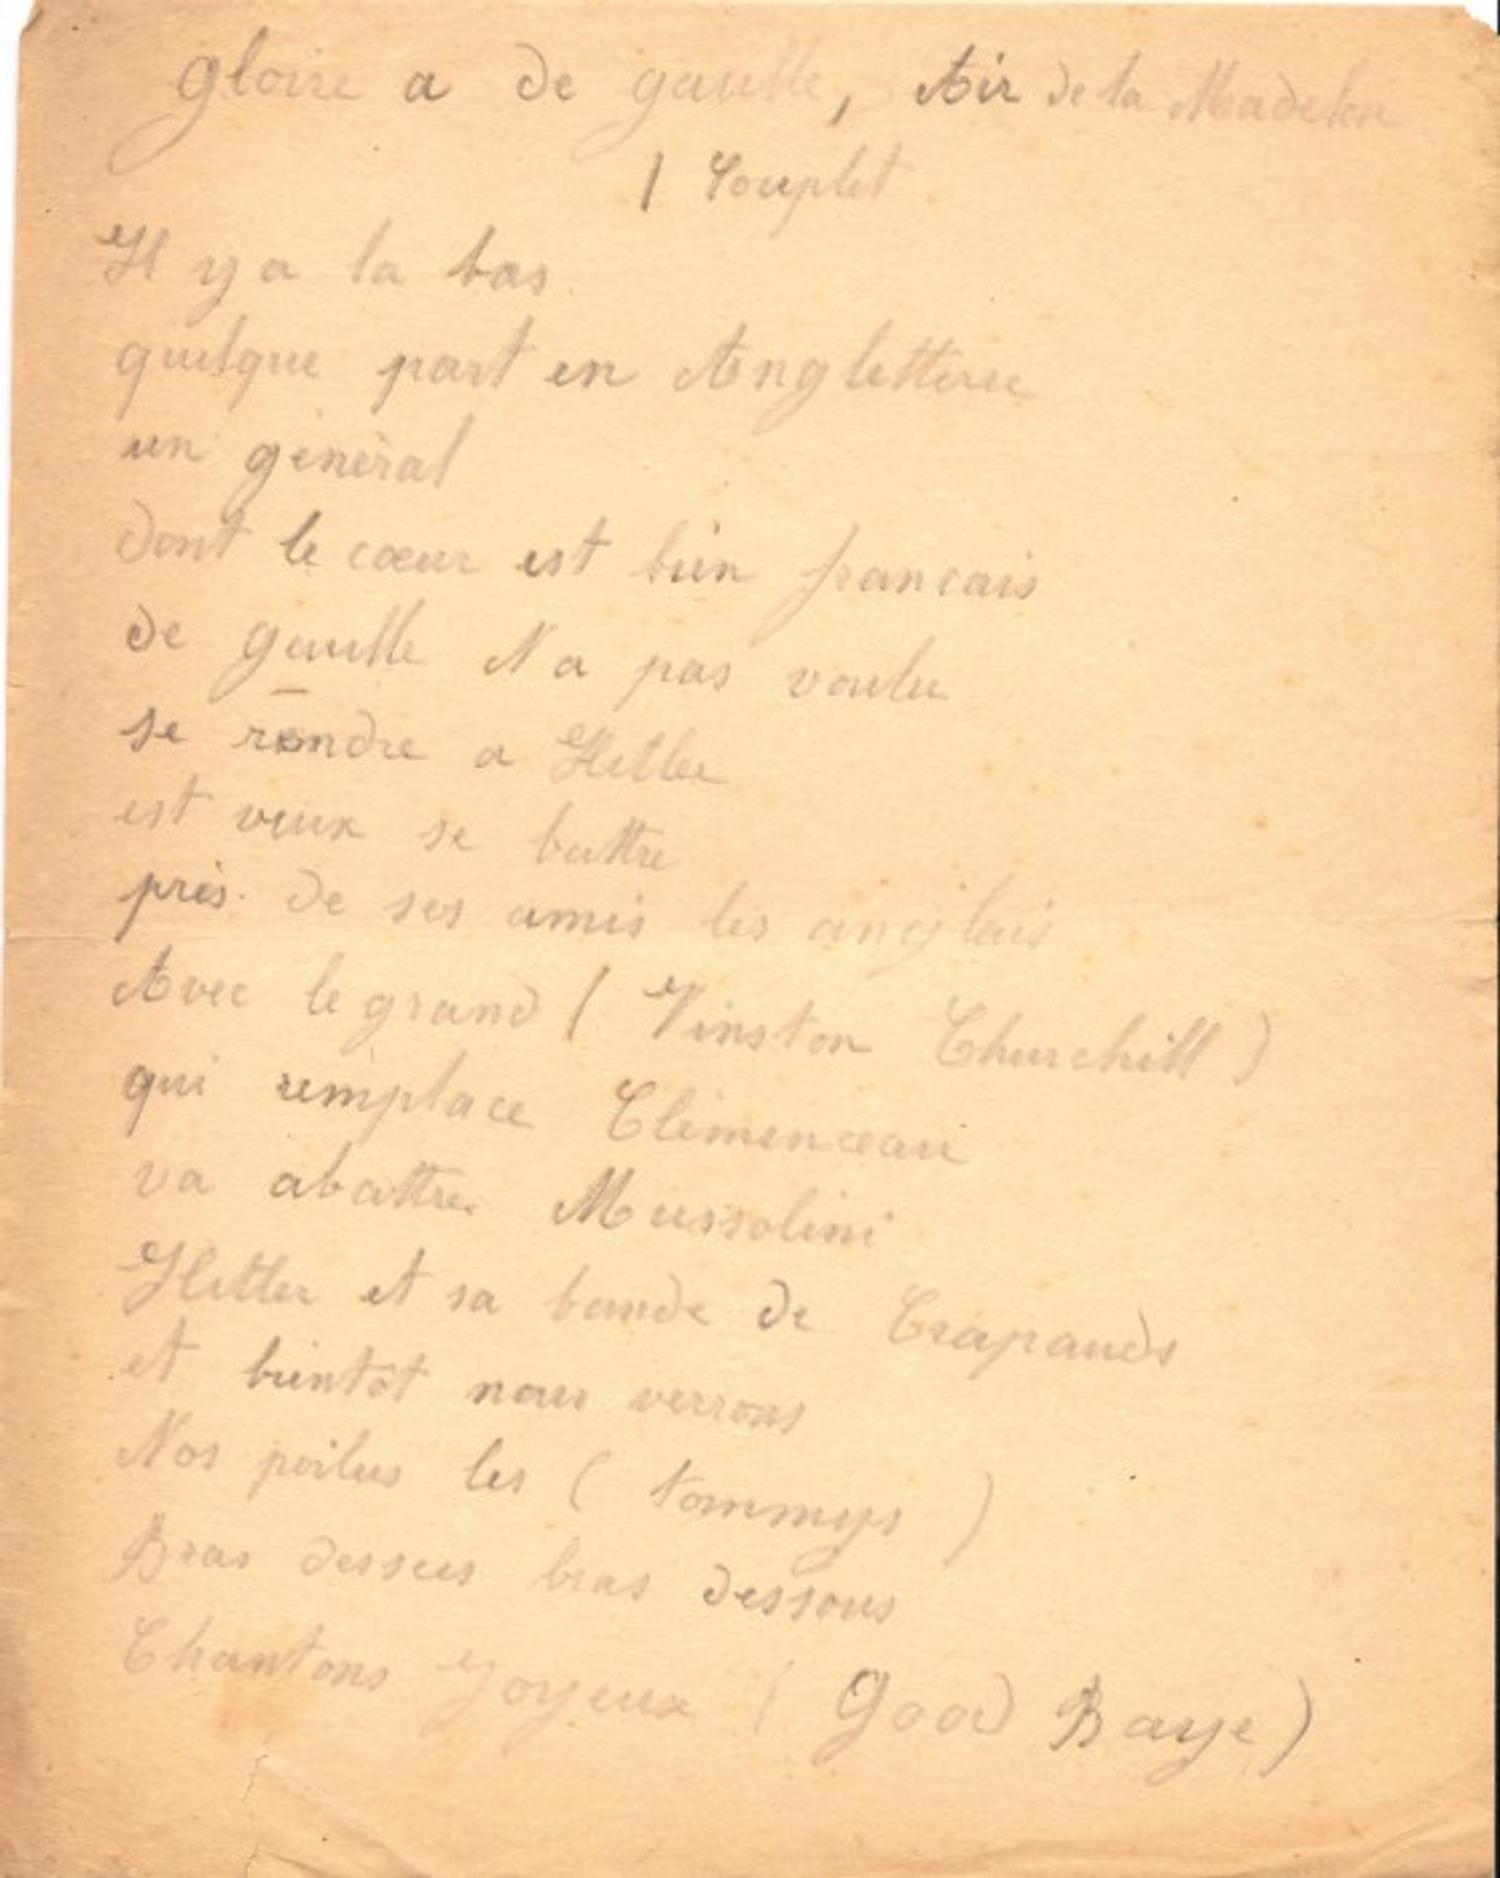 gloire a de gaulle, Air de la Madelon
1 Couplet
Il y a la bas
quelque part en Angletterre
un géneral
dont le cœur est bien francais
de gaulle N a pas voulu
se rendre a Hitler
est veux se battre
près de ses amis les anglais
Avec le grand ( Vinston Churchill )
qui remplace Clémenceau
va abattre Mussolini
Hitler et sa bande de Crapauds
et bientot nous verrons
Nos poilus les ( tommys )
Bras dessus bras dessous
Chantons Joyeux ( Good Baye )